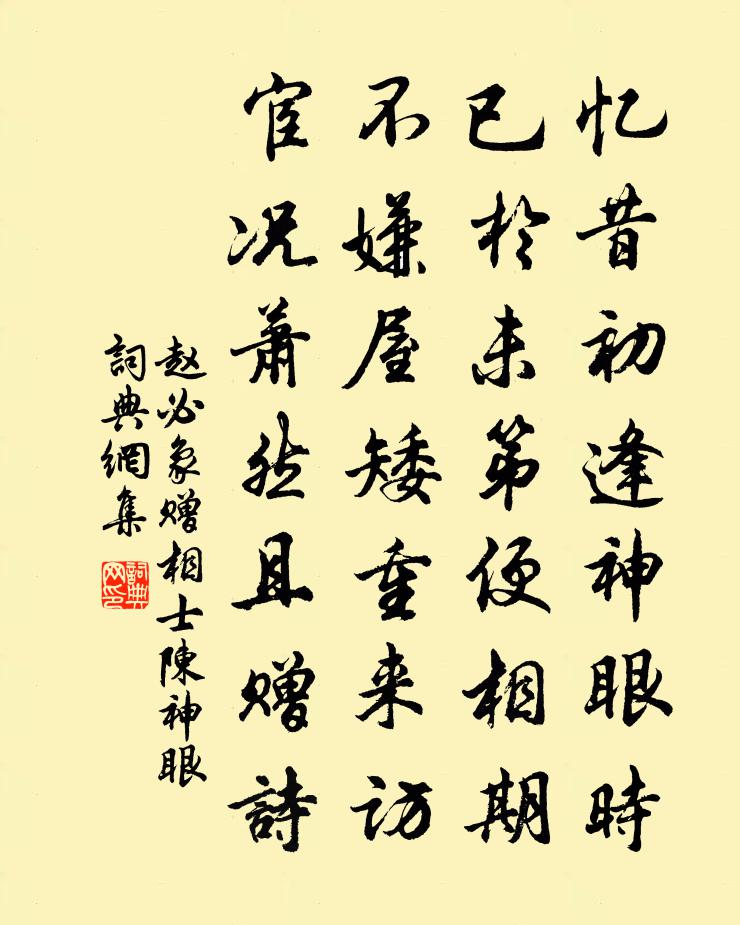 忆昔初逢神眼時
已於未第便相期
不嫌屋矮重来访
宦况萧然且赠詩
赵必象赠相士陳神眼
詞典網集
詞典网印